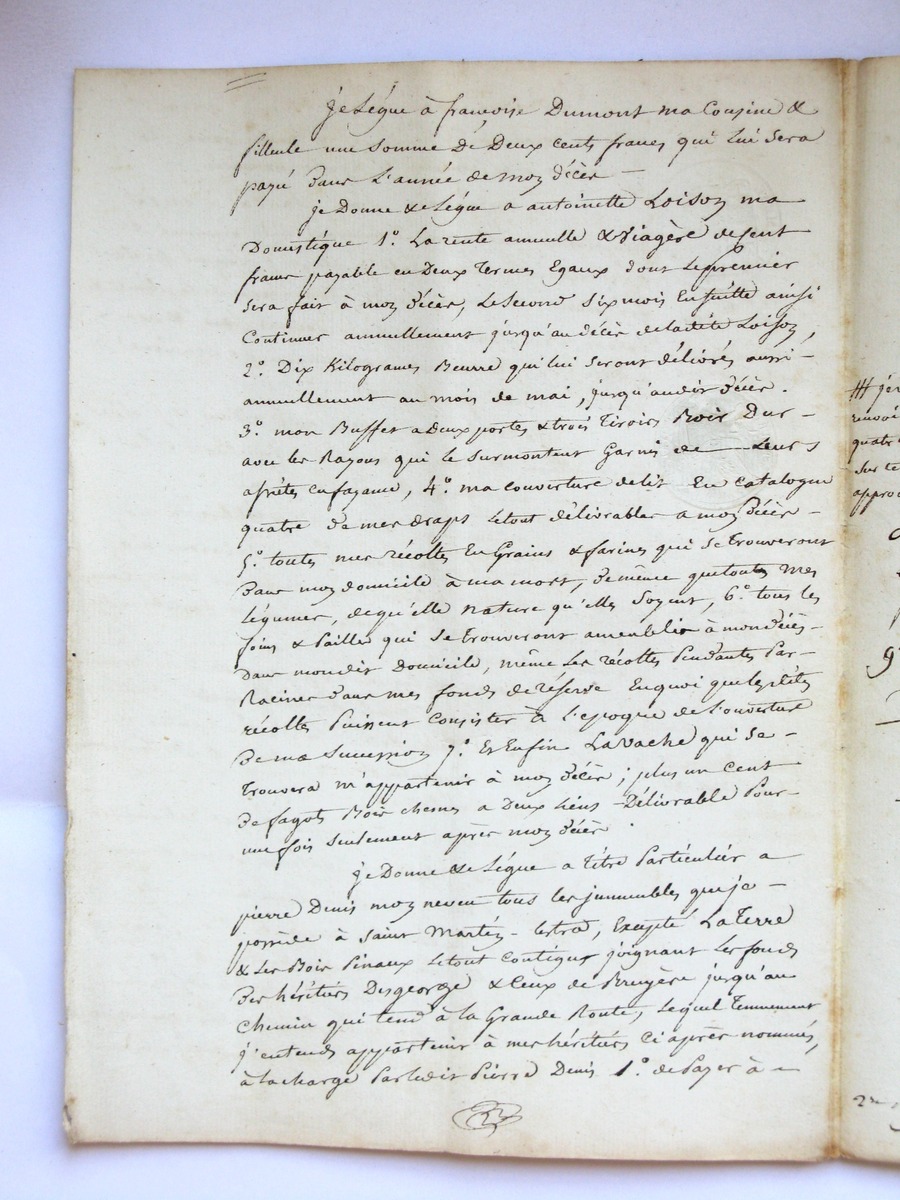 je Légue à françoise Dumont ma Cousine &
filleule une Somme De Deux cents francs qui Lui Sera
payé dans L'année de moy décès —
je Donne & Légue a antoinette Loison ma
Domestique 1º. La rente annuelle & Viagère de Cent
francs payable en Deux Termes Egaux dont Le premier
Sera fait à moy décès, Le Second Six mois En Suitte ainsi
Continuer annuellement jusqu'au décès de la ditte Loison,
2º. Dix Kilogrames Beurre qui lui Seront délivrés aussi
annuellement au mois de mai, jusqu'audit décès.
3º. mon Buffet a Deux portes & trois Tiroirs Bois Dur —
avec les Rayons qui le Surmontent Garnis de — Leurs
afsiétes en fayance, 4º. ma couverture de lit En catalogue
quatre de mes draps Letout délivrables a moy décès —
5º. toutes mes récoltes En Grains & farines qui Se trouveront
dans moy domicile à ma mort, de même que toutes mes
Légumes, de qu'elle nature qu'elles Soyent, 6º. tous les
foins & Pailles qui Se trouveront ameublis à mon décès —
Dans mon dit Domicile, même Les récoltes Pendantes Par —
Racines dans mes fonds de réserve En quoi que les dites
récoltes Puissent Consister à L'epoque de L'ouverture
De ma Succession 7º. Et Enfin La Vache qui Se —
Trouvera m'appartenir à moy décès ; plus un Cent
De fagots Bois chenes a Deux liens Délivrable Pour —
une fois Seulement après moy décès.
je Donne & Légue a Titre Particulier a
pierre Denis moy neveu tous les jmmeubles que je —
possède à Saint Martin - lestra, Excepté La Terre
& Les Bois Pinaux Letout Contigus joignant Les fonds
Des héritiers Desgeorge & Ceux de Bruyère jusqu'au
chemin qui tend à la Grande Route, Lequel Tennement
j'entends appartenir à mes héritiers Ci après nommés,
à la charge Par ledit Pierre Denis 1º. de Payer à —